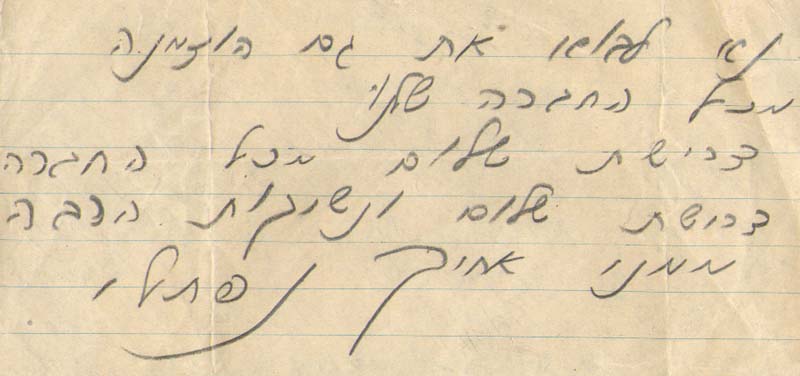 נא לבוא את גם הוזמנה
מכל החברה שלנו
דרישת שלום מכל החברה
דרישת שלום ונשיקות הרבה
ממני אחיך נפתלי